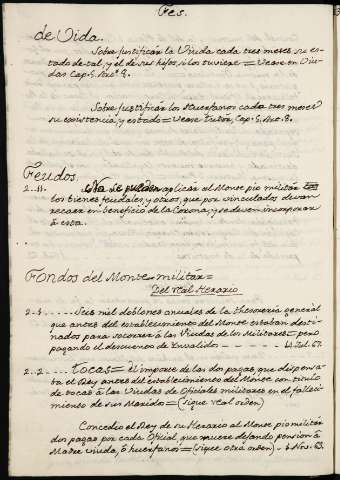 Fes.
de Vida.
Sobre justificàr la Viuda cada tres meses su es-
tado de tal, y el de sus hijos, si los tuviere = Vease en Viu-
das Cap. 5. Art.º 8.
Sobre justificàr los Huerfanos cada tres meses
su existencia, y estado = Vease Tutòr, Cap. 5. Art.º 8.
Feudos.
2..11. No se pueden aplicàr al Monte pio militàr
los bienes feudales, y otros, que por vinculados devan
recaer en beneficio de la Corona, y se deven incorporàr
à esta.
Fondos del Monte militàr =
Del real Herario
2..1..... Seis mil doblones anuales de la thesoreria general
que antes del establecimiento del Monte estaban desti-
nados para socorrèr à las Viudas de los Militares = pero
pagando el descuento de Invalidos - - - - 67.
2..2..... tocas = el importe de las dos pagas, que dispensa-
ba el Rey antes del establecimiento del Monte con titulo
de tocas à las Viudas de Oficiales militares en el falleci-
miento de sus Maridos = (sigue real orden)
Concedio el Rey de su Herario al Monte pio militàr
dos pagas por cada Oficial, que muere dejando pension à
Madre viuda, ò huerfanos = (sigue otra orden) - 4 Nov. 63.